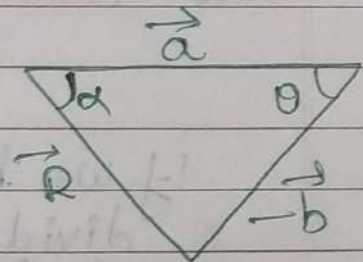 →a
α θ
→R -→b